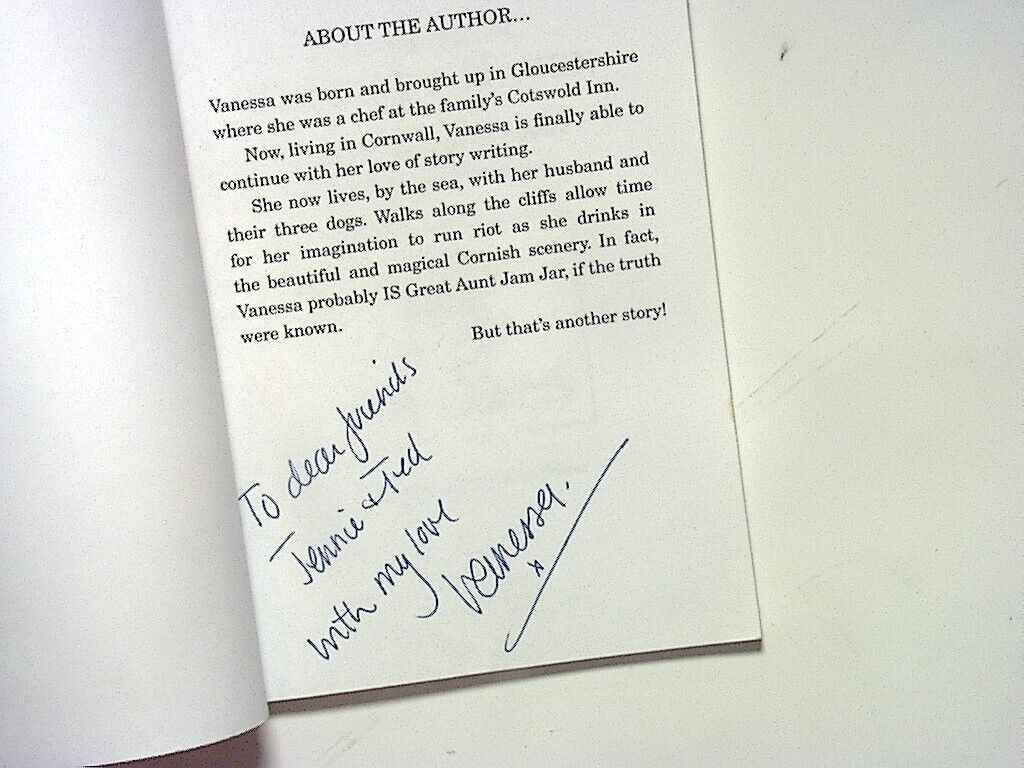 ABOUT THE AUTHOR...
Vanessa was born and brought up in Gloucestershire
where she was a chef at the family's Cotswold Inn.
Now, living in Cornwall, Vanessa is finally able to
continue with her love of story writing.
She now lives, by the sea, with her husband and
their three dogs. Walks along the cliffs allow time
for her imagination to run riot as she drinks in
the beautiful and magical Cornish scenery. In fact,
Vanessa probably IS Great Aunt Jam Jar, if the truth
were known.
But that's another story!
To dear friends
Jennie & Ted
with my love
Vanessa.
x